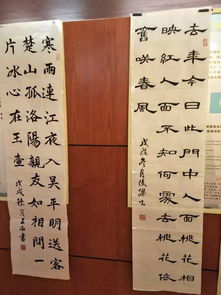 去年今日此門中人面桃花相
映紅人面不知何處去桃花依
舊咲春風
戊戌冬月
寒雨連江夜入吴平明送客
楚山孤洛陽親友如相問一
片冰心在玉壺
戊戌秋月 書